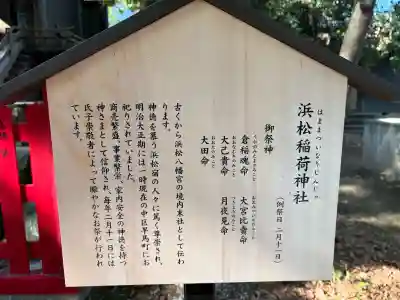 はままついなりじんじゃ
浜松稲荷神社
(例祭日 二月十一日)
御祭神
うかのみたまのみこと
倉稲魂命
おおみやひめのみこと
大宮比賣命
おおなむちのみこと
大己貴命
つきよみのみこと
月夜見命
おおたのみこと
大田命
古くから浜松八幡宮の境内末社として伝わ
ります。
神徳を慕う浜松宿の人々に篤く尊崇され、
明治大正期には一時現在の中区早馬町にお
祀りされていました。
商売繁盛、事業繁栄、家内安全の神徳を持つ
神さまとして信仰され、毎年二月十一日には
氏子崇敬者によって賑やかなお祭が行われ
ています。